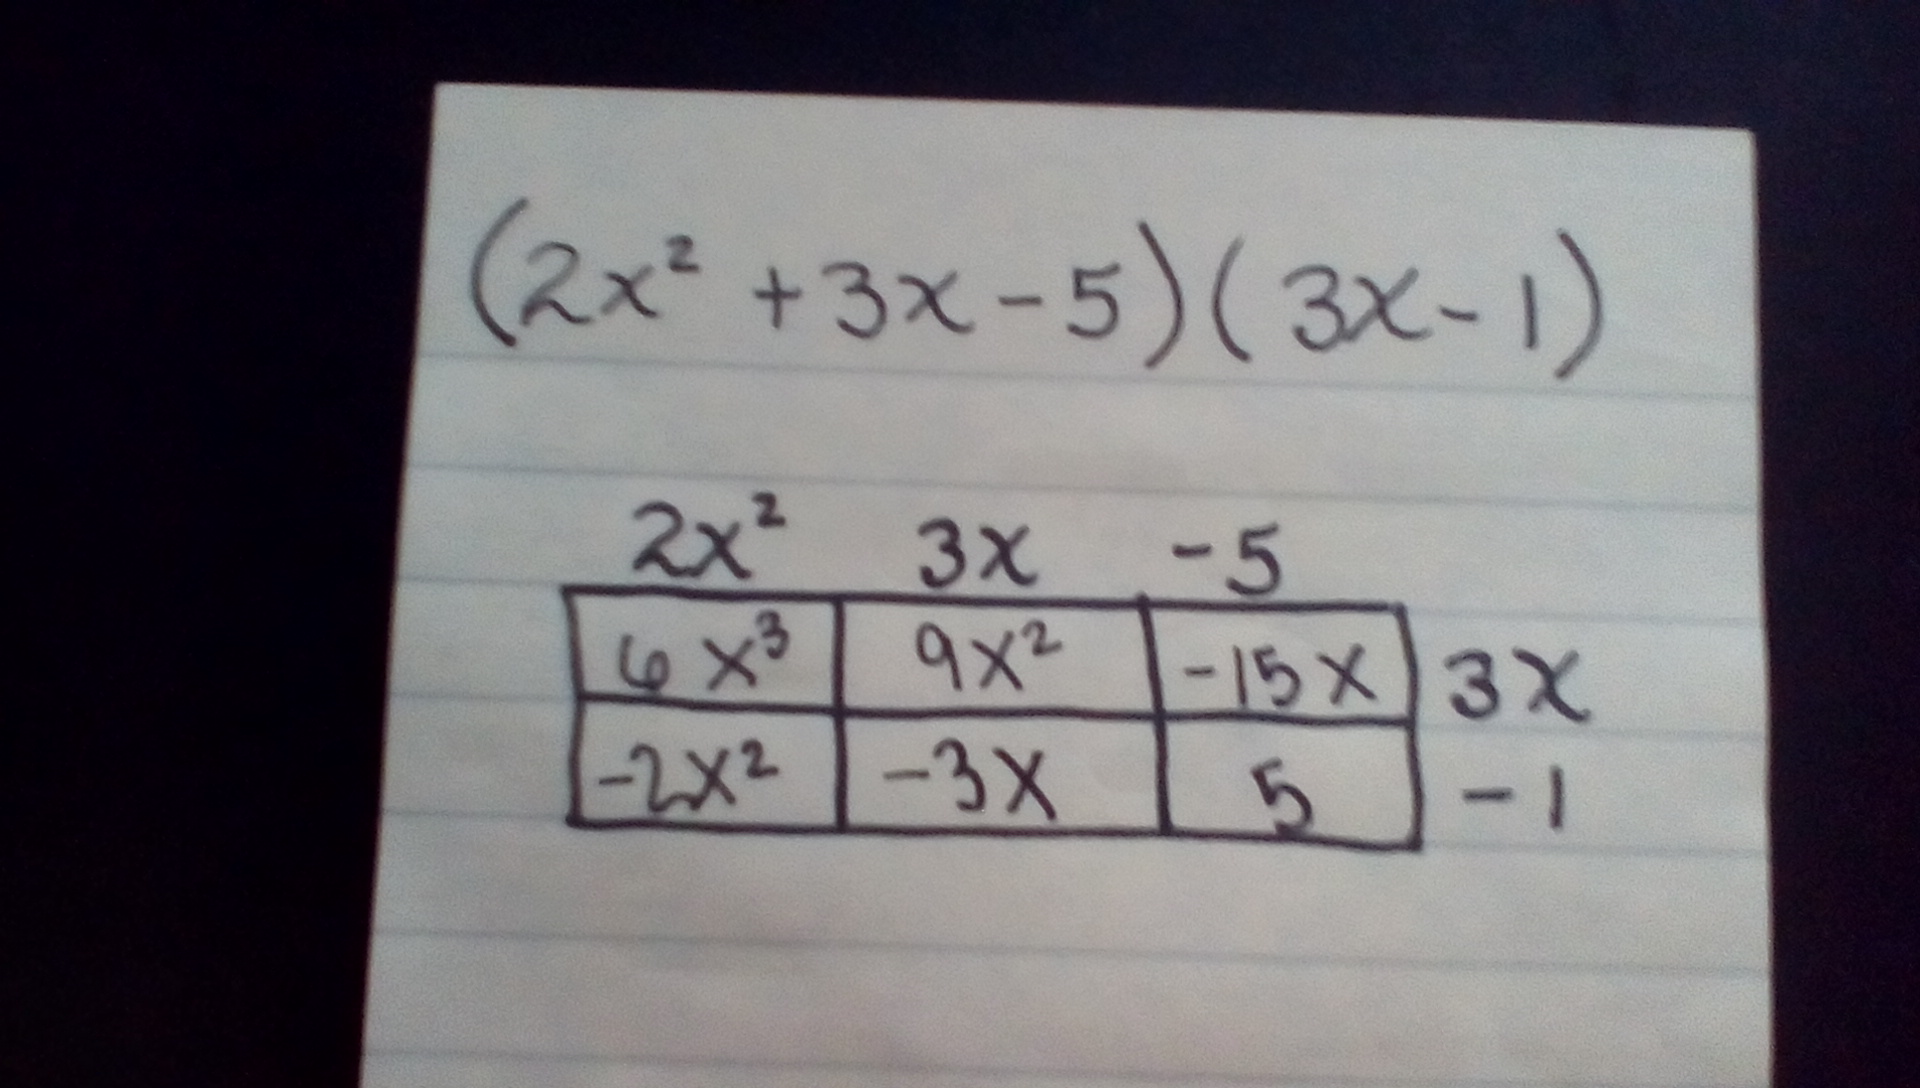 (2x² + 3x - 5)(3x - 1)
2x² 3x -5
6x³ 9x² -15x 3x
-2x² -3x 5 -1